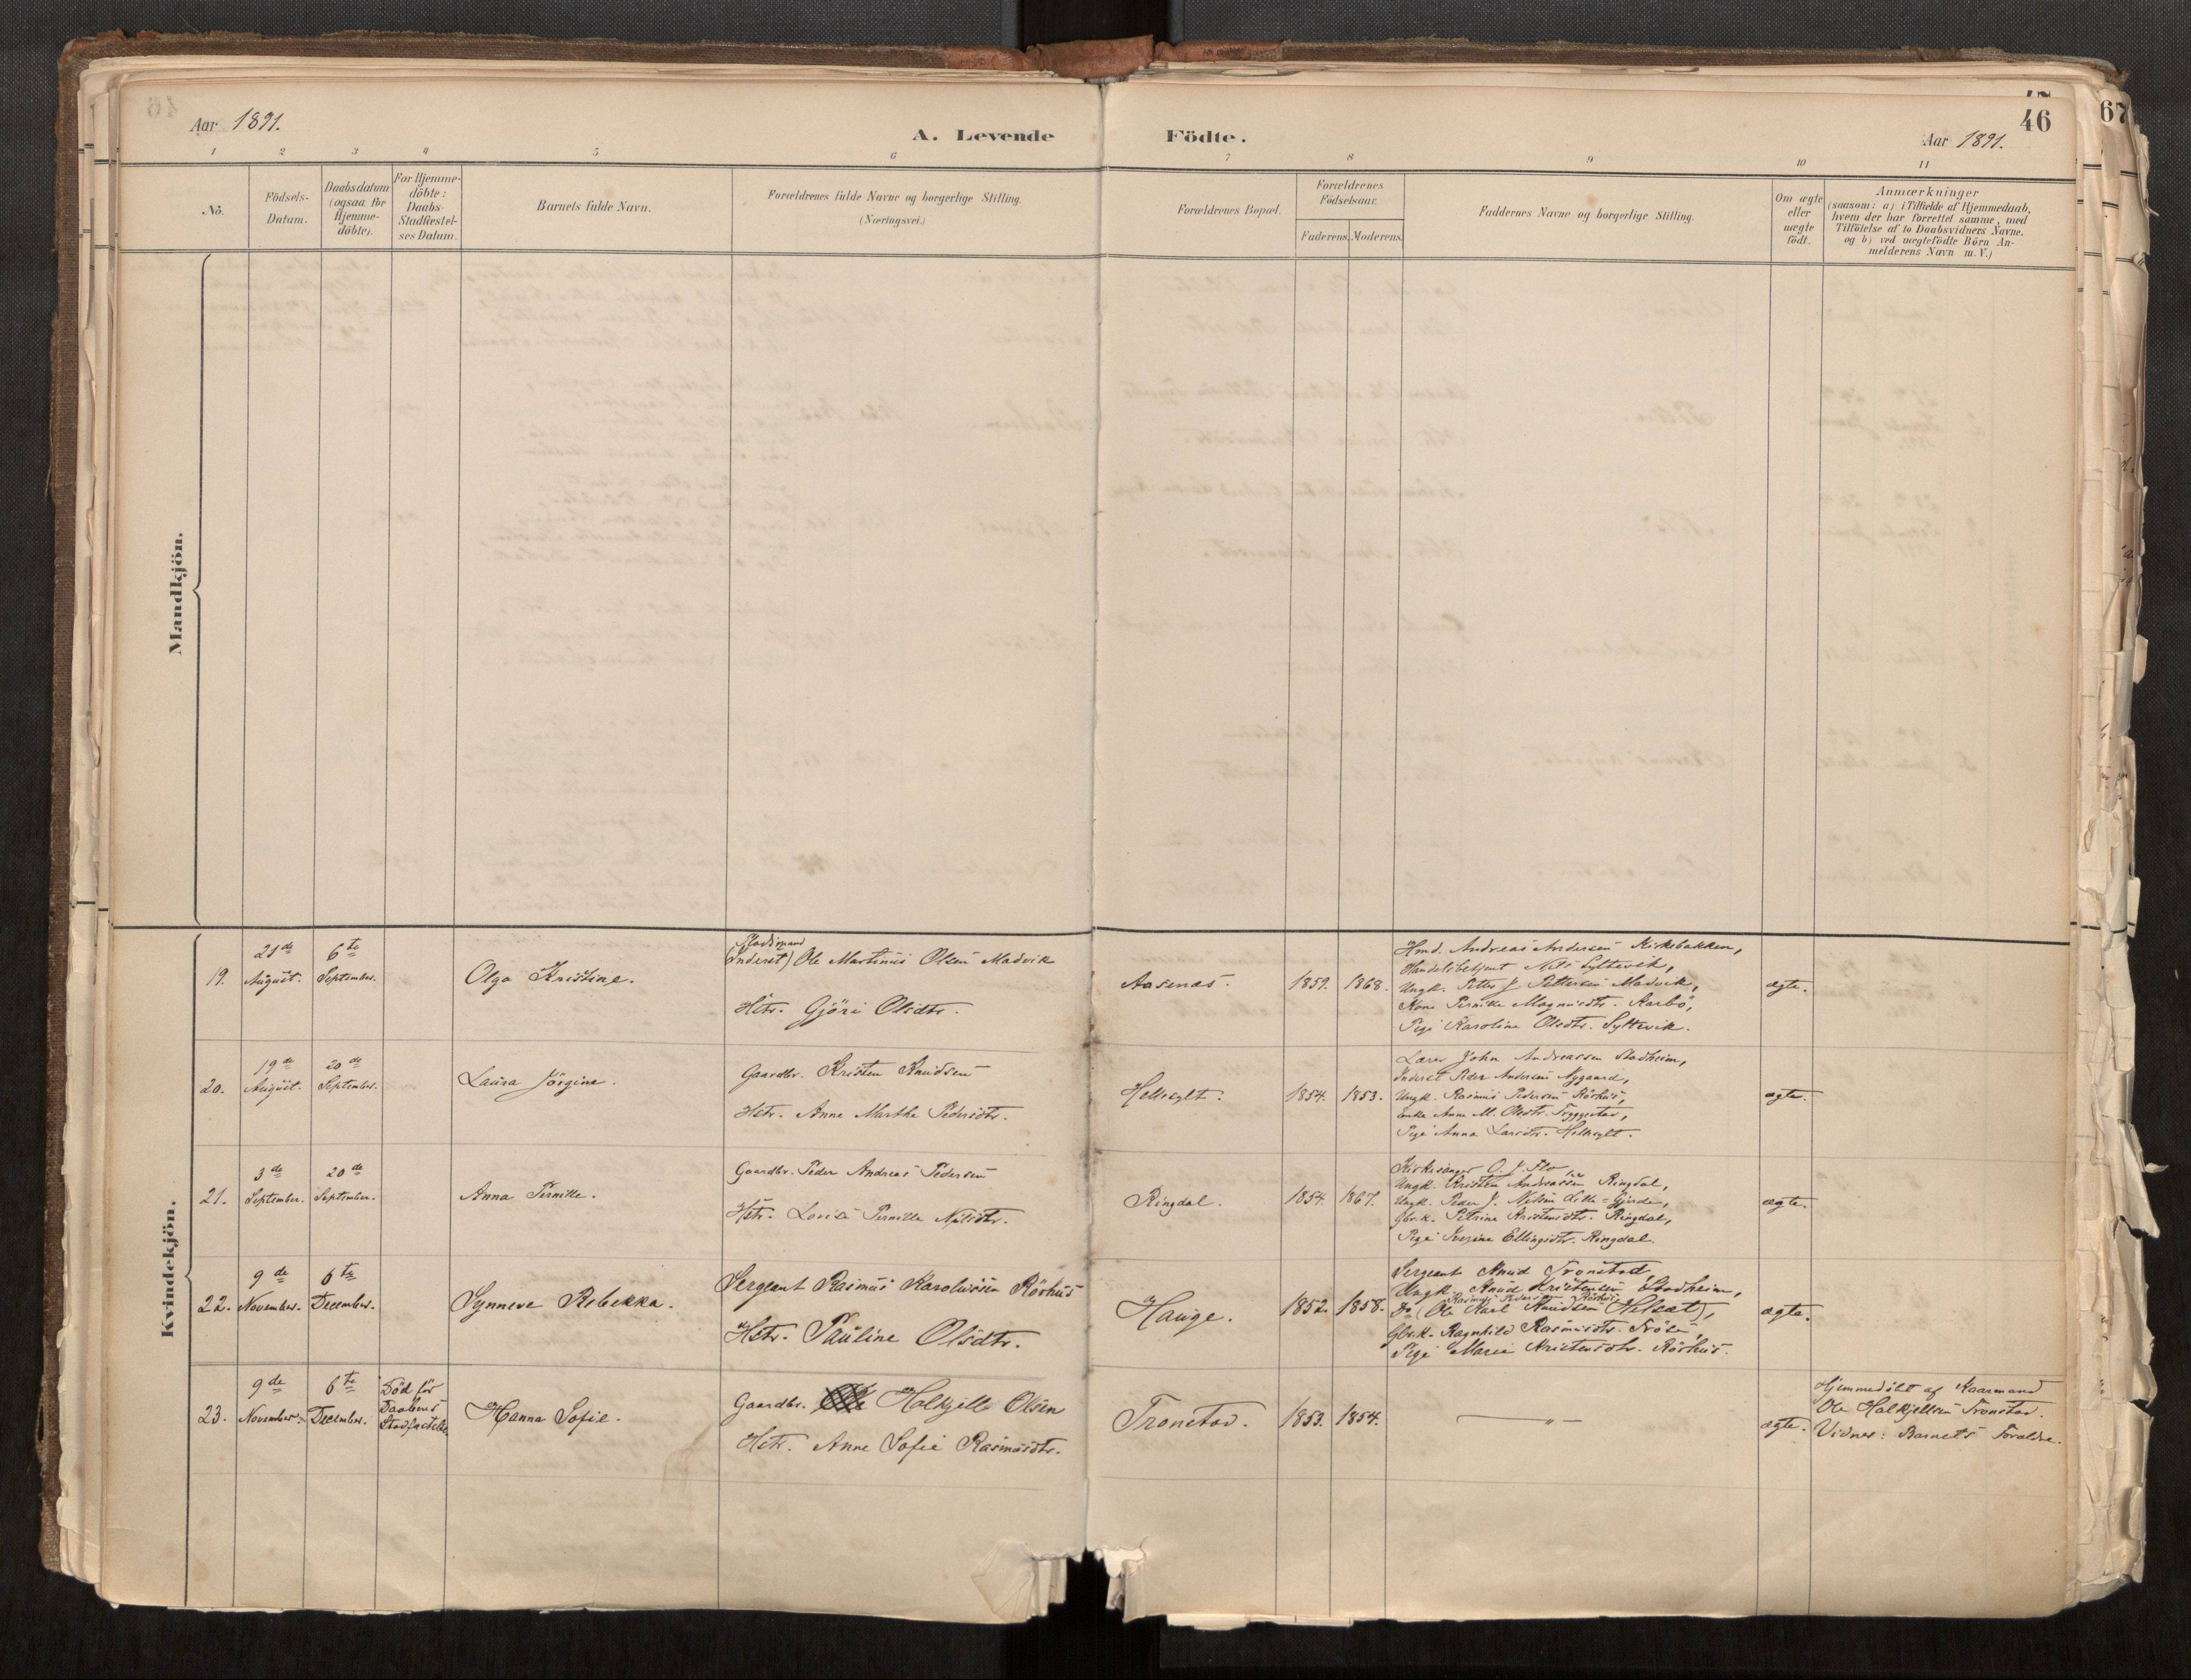 Aar 1891.
A. Levende Födte.
46
67
Aar 1891.
1 2 3 4 5 6 7 8 9 10 11
No.
Födsels-
Datum.
Daabsdatum
(ogsaa for
Hjemme-
döbte).
For Hjemme-
döbte:
Daabs-
Stadfæstel-
ses Datum.
Barnets fulde Navn.
Forældrenes fulde Navne og borgerlige Stilling.
(Næringsvei.)
Forældrenes Bopæl.
Forældrenes
Födselsaar.
Faderens. Moderens.
Faddernes Navne og borgerlige Stilling.
Om ægte
eller
uægte
födt.
Anmærkninger
(saasom: a) i Tilfælde af Hjemmedaab,
hvem der har forrettet samme, med
Tilföielse af to Daabsvidners Navne.
og b) ved uægtefödte Börn An-
melderens Navn m.V.)
Mandkjön.
Kvindekjön.
19.
21de
August.
6te
September.
Olga Kristine.
Pladsmand
(Inderst) Ole Martinus Olsen Madvik
Hstr. Gjöri Olsdtr.
Aasenæs.
1859. 1868.
Hmd. Andreas Andersen Kirkebakken,
Handelsbetjent Nils Syltevik,
Ungk. Petter J. Pettersen Madvik,
Kone Pernille Magnusdtr. Aarbö,
Pige Karoline Olsdtr. Syltevik.
ægte.
20.
19de
August.
20de
September.
Laura Jörgine.
Gaardbr. Kristen Knudsen
Hstr. Anne Marthe Pedersdtr.
Hellesylt.
1854. 1853.
Lærer John Andreassen Stadheim,
Inderst Peder Andersen Nygaard,
Ungk. Rasmus Pedersen Rörhus,
Enke Anne M. Olsdtr. Tryggestad,
Pige Anna Larsdtr. Hellesylt.
ægte.
21.
3de
September.
20de
September.
Anna Pernille.
Gaardbr. Peder Andreas Pedersen
Hstr. Lovise Pernille Nilsdtr.
Ringdal.
1854. 1867.
Kirkesanger O. J. Flo,
Ungk. Kristen Andreassen Ringdal,
Ungk. Peder J. Nilsen Lille-Gjerde,
Gbr.k. Petrine Kristensdtr. Ringdal,
Pige Iverine Ellingsdtr. Ringdal.
ægte.
22.
9de
November.
6te
December.
Synneve Rebekka.
Sergeant Rasmus Karolussen Rörhus
Hstr. Pauline Olsdtr.
Hauge.
1852. 1858.
Sergeant Knud Tronstad,
Ungk. Knud Kristensen Stadheim,
Rasmus Pedersen Rörhus
Do (Ole Karl Knudsen Helset),
Gbr.k. Ragnhild Rasmusdtr. Tröen,
Pige Marie Kristensdtr. Rörhus.
ægte.
23.
9de
November.
6te
December.
Död för
Daabens
Stadfæstelse
Hanna Sofie.
Gaardbr. Ole Halkjelle Olsen
Hstr. Anne Sofie Rasmusdtr.
Tronstad.
1853. 1854.
— " —
ægte.
Hjemmedöbt af Kaarmand
Ole Halkjellsen Tronstad.
Vidner: Barnets Forældre.